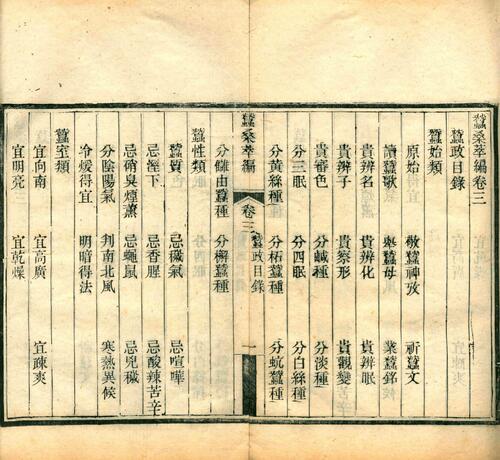 蠶桑萃編卷三
蠶政目錄
蠶始類
原始 敬蠶神攷 祈蠶文
讀蠶歌 恩蠶母 業蠶銘
貴辨名 貴辨化 貴辨眠
貴辨子 貴察形 貴觀變
貴審色 分鹹種 分淡種
分三眠 分四眠 分白絲種
分黃絲種 分柘蠶種 分蚖蠶種
蠶桑萃編 卷三 蠶政目錄 一
分雔由蠶種 分檞蠶種
蠶性類
蠶質 忌穢氣 忌喧嘩
忌溼下 忌香腥 忌酸辣苦辛
忌硝臭煙薰 忌蠅鼠 忌兇穢
分陰陽氣 判南北風 寒熱異候
冷煖得宜 明暗得法
蠶室類
宜向南 宜高廣 宜疎爽
宜明亮 宜乾燥